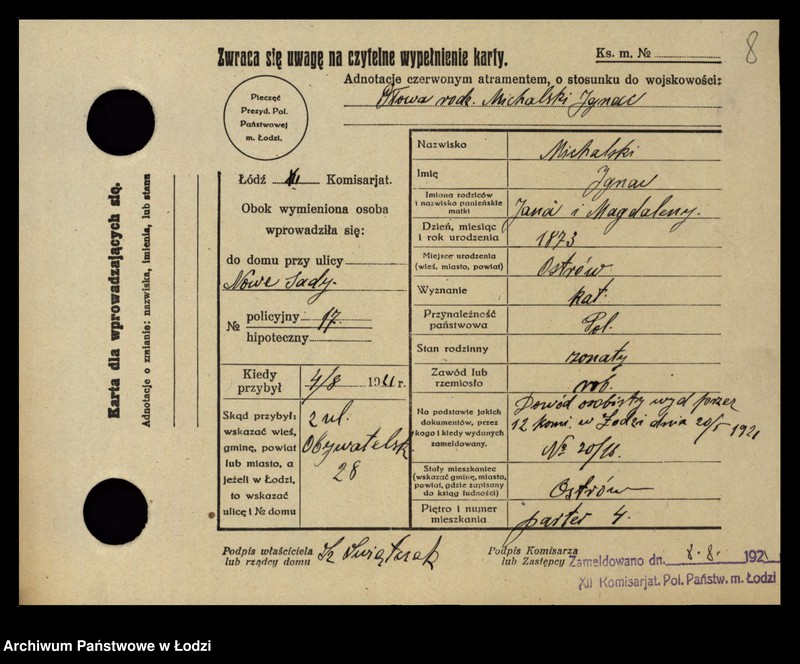 8
Zwraca się uwagę na czytelne wypełnienie karty.
Ks. m. №
Adnotacje czerwonym atramentem, o stosunku do wojskowości:
Głowa rodz. Michalski Ignac
Pieczęć
Prezyd. Pol.
Państwowej
m. Łodzi.
Łódź XII Komisarjat.
Obok wymieniona osoba
wprowadziła się:
do domu przy ulicy
Nowe Sady.
№ policyjny 17.
hipoteczny
Kiedy
przybył 4/8 1921 r.
Skąd przybył:
wskazać wieś,
gminę, powiat
lub miasto, a
jeżeli w Łodzi,
to wskazać
ulicę i № domu
z ul.
Obywatelsk.
28
Nazwisko Michalski
Imię Ignac
Imiona rodziców
i nazwisko panieńskie
matki
Jana i Magdaleny.
Dzień, miesiąc
i rok urodzenia 1873
Miejsce urodzenia
(wieś, miasto, powiat) Ostrów
Wyznanie kat.
Przynależność
państwowa Pol.
Stan rodzinny żonaty
Zawód lub
rzemiosło rob.
Na podstawie jakich
dokumentów, przez
kogo i kiedy wydanych
zameldowany.
Dowód osobisty wyd przez
12 komi. w Łodzi dnia 20/5 1921
№ 20/18.
Stały mieszkaniec
(wskazać gminę, miasto,
powiat, gdzie zapisany
do ksiąg ludności)
Ostrów
Piętro i numer
mieszkania parter 4.
Podpis właściciela
lub rządcy domu
Podpis Komisarza
lub Zastępcy
Zameldowano dn. 8.8. 1921
XII Komisarjat. Pol. Państw. m. Łodzi
Karta dla wprowadzających się.
Adnotacje o zmianie: nazwiska, imienia, lub stanu
Archiwum Państwowe w Łodzi